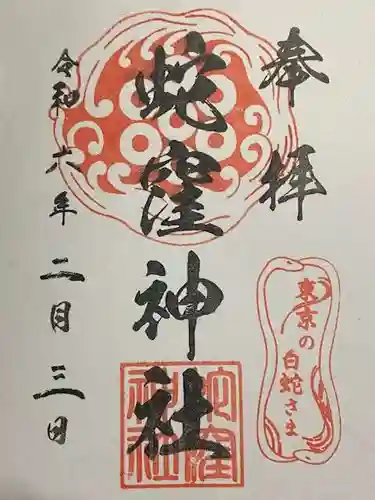 奉拝
東京の
白蛇さま
蛇窪神社
蛇窪
神社
令和六年二月三日